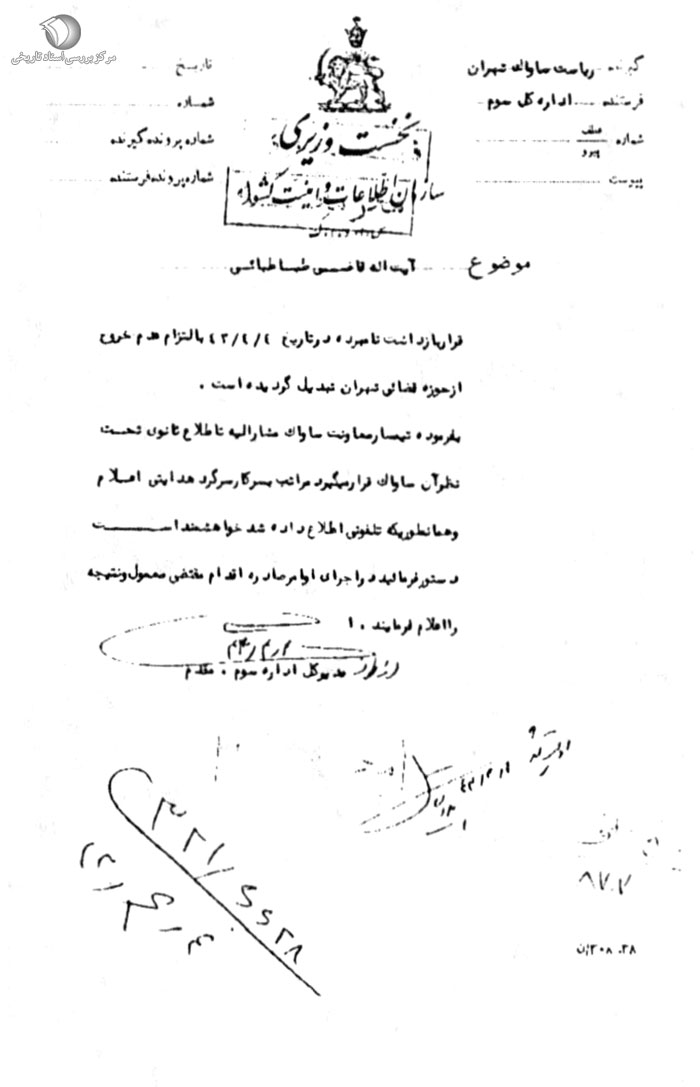 مرکز بررسی اسناد تاریخی
گیرنده ریاست ساواك تهران
فرستنده اداره کل سوم
شماره عطف پیرو
پیوست
تاریخ
شماره
شماره پرونده گیرنده
شماره پرونده فرستنده
نخست وزیری
سازمان اطلاعات و امنیت کشور
موضوع آیت اله قاضی طباطبائی
قرار بازداشت نامبرده در تاریخ ۴۳/۴/۴ بالتزام عدم خروج
از حوزه قضائی تهران تبدیل گردیده است .
بفرموده تیمسار معاونت ساواك مشارالیه تا اطلاع ثانوی تحت
نظر آن ساواك قرار میگیرد مراتب بسرکار سرگرد هدایتی اعلام
و همانطوریکه تلفونی اطلاع داده شد خواهشمند است
دستور فرمائید در اجرای اوامر صادره اقدام مقتضی معمول و نتیجه
را اعلام فرمایند . ا
مدیرکل اداره سوم . مقدم
از طرف
۸۷۰۷